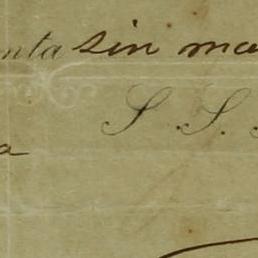 nta sin ma
S. S.
a